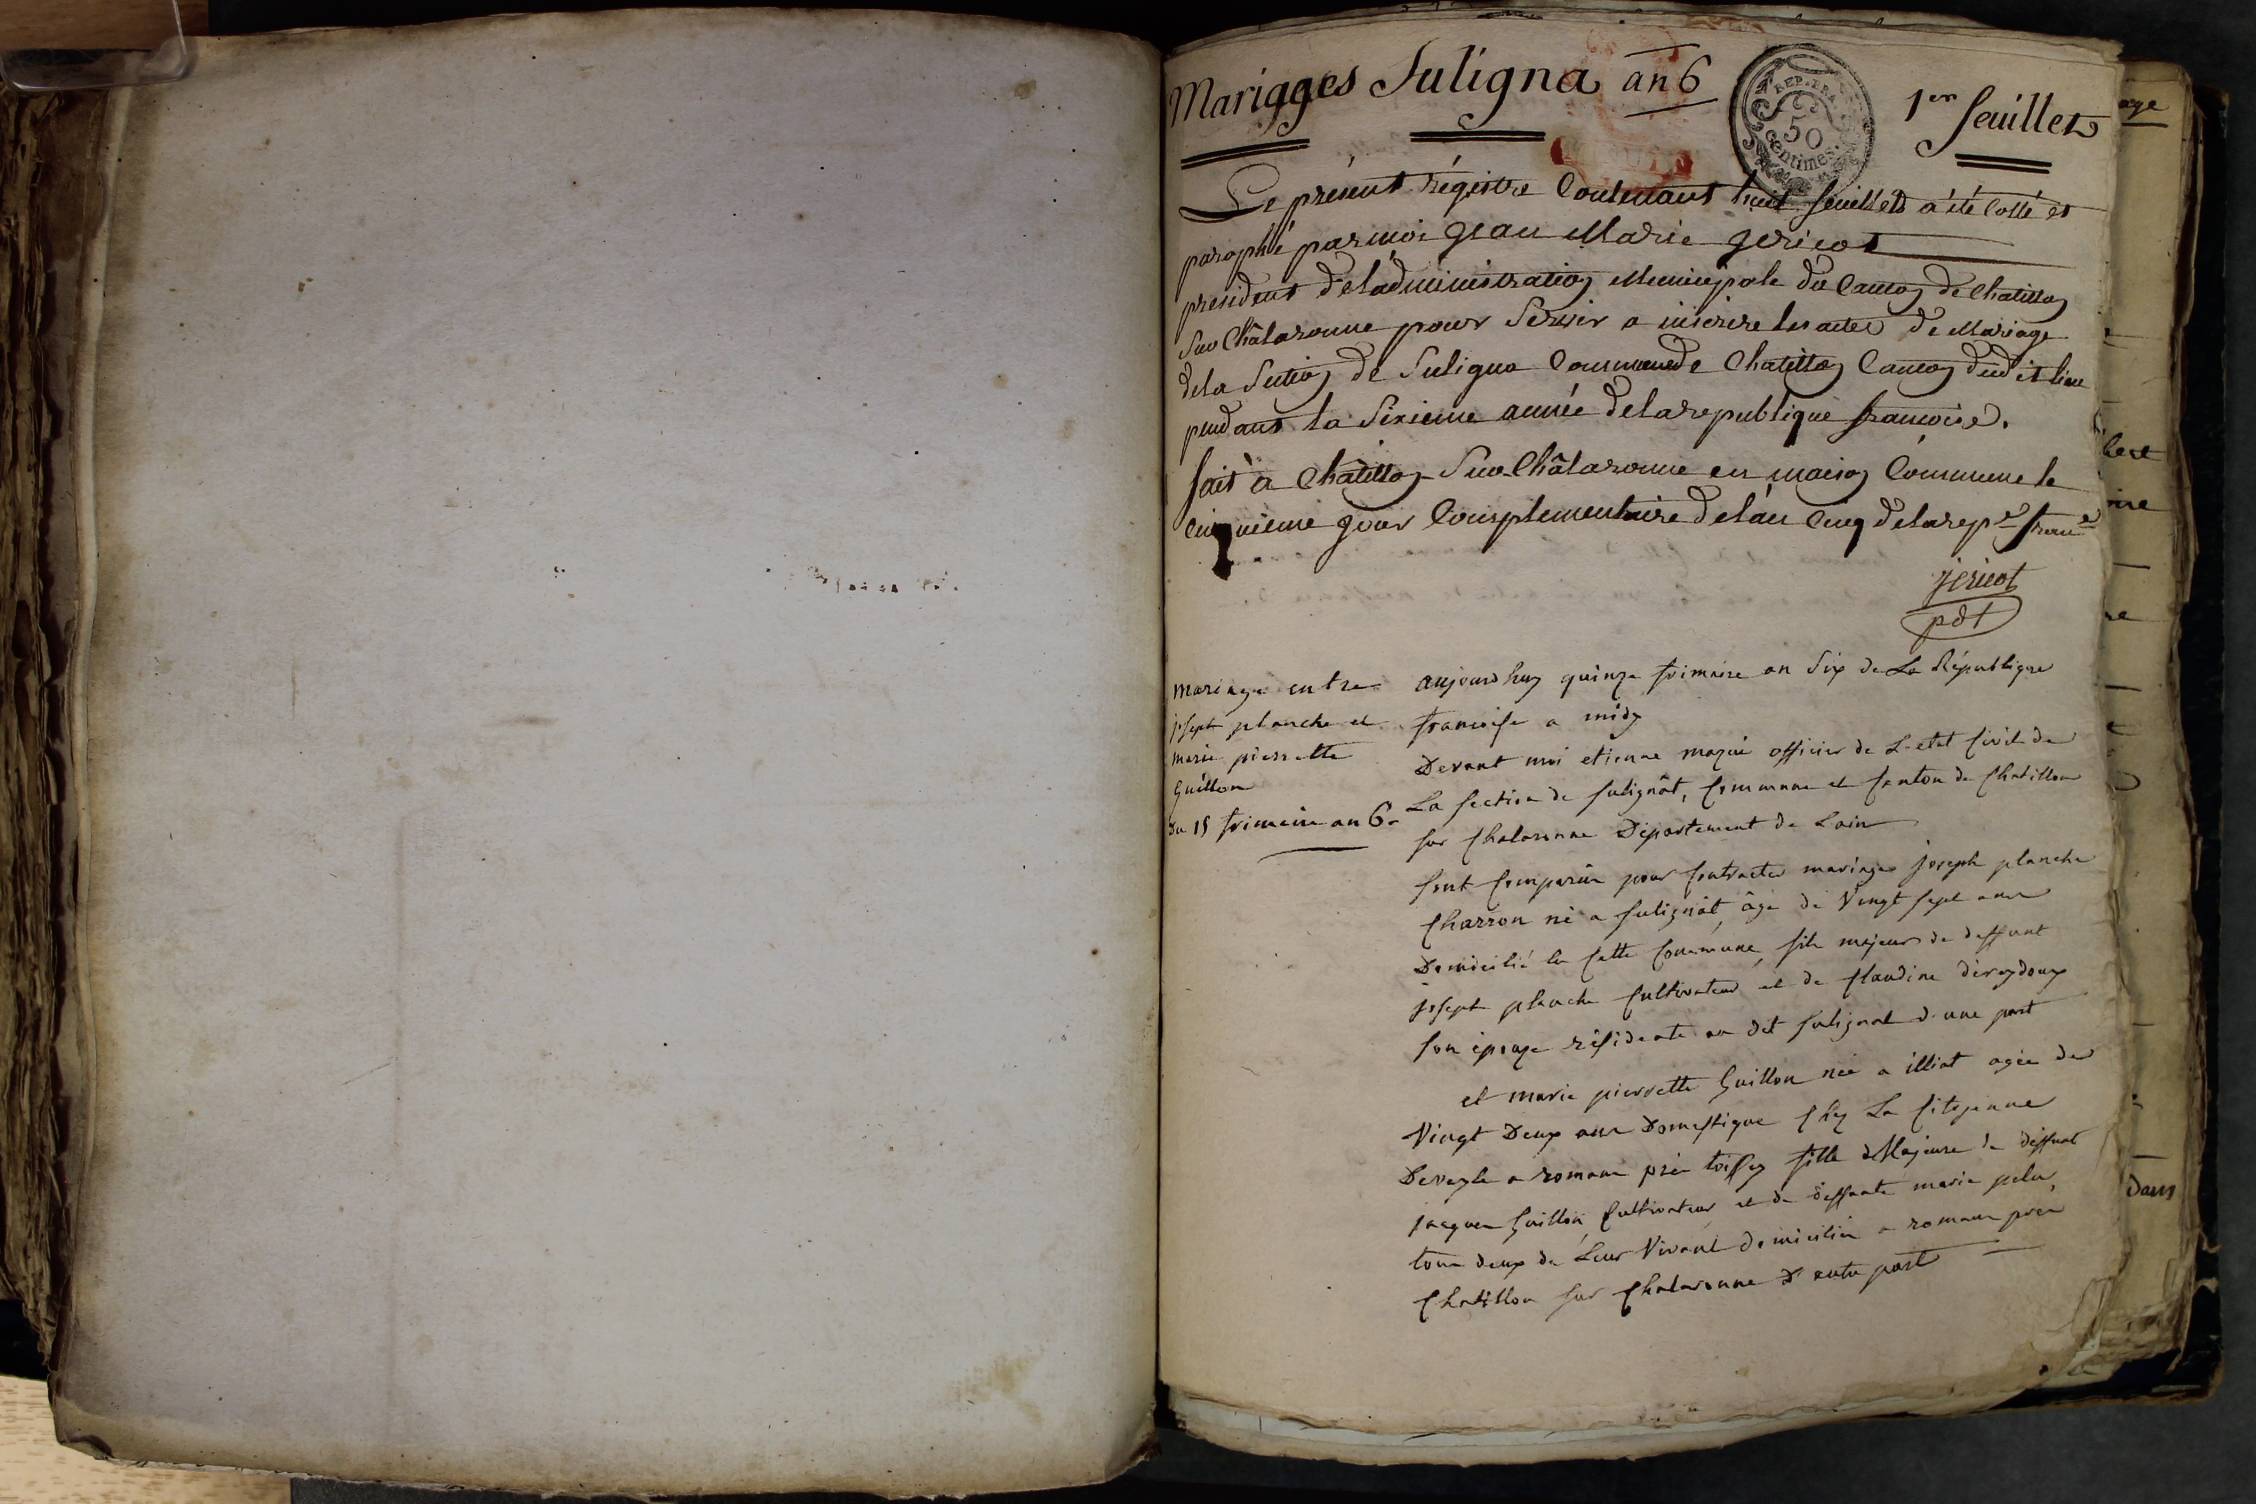 Mariages Suligna an 6
1er feuillet
REP. FRA.
50
centimes.
Le présent régistre Contenant huit feuillets a été Cotté et
paraphé par moi Jean Marie Jericot
president de l'administration Municipale du Canton de Chatillon
Sur Châlaronne pour Servir a inscrire les actes de Mariage
de la Section de Suligna Commune de Chatillon Canton dudit lieu
pendant la Sixieme année de la republique francoise.
fait à Châtillon Sur Châlaronne en maison Commune le
cinquieme jour Complementaire de l'an Cinq de la repe. frane
jericot
pdt
Mariage entre
joseph planche et
marie pierrette
Guillon
Du 15 frimaire an 6e
aujourdhuy quinze frimaire an Six de La République
francoise a midy
Devant moi etienne officier de L'etat Civil de
La section de Sulignât, Commune et Canton de Chatillon
sur Chalaronne Département de Lain
sont Comparûs pour Contracter mariage joseph planche
Charron né a sulignât, âgé de Vingt sept ans
Domicilié en Cette Commune, fils majeur de deffunt
joseph planche Cultivateur et de Claudine
son épouse résidente au dit sulignat d'une part
et marie pierrette Guillon née a illiat agée de
Vingt Deux ans Domestique Chez La Citoyenne
a romans près toissey fille Majeure de deffunt
jacques Guillon, Cultivateur et de deffunte marie
tous deux de Leur Vivant domiciliés a romans près
Chatillon sur Chalaronne D'autre part
age
dans